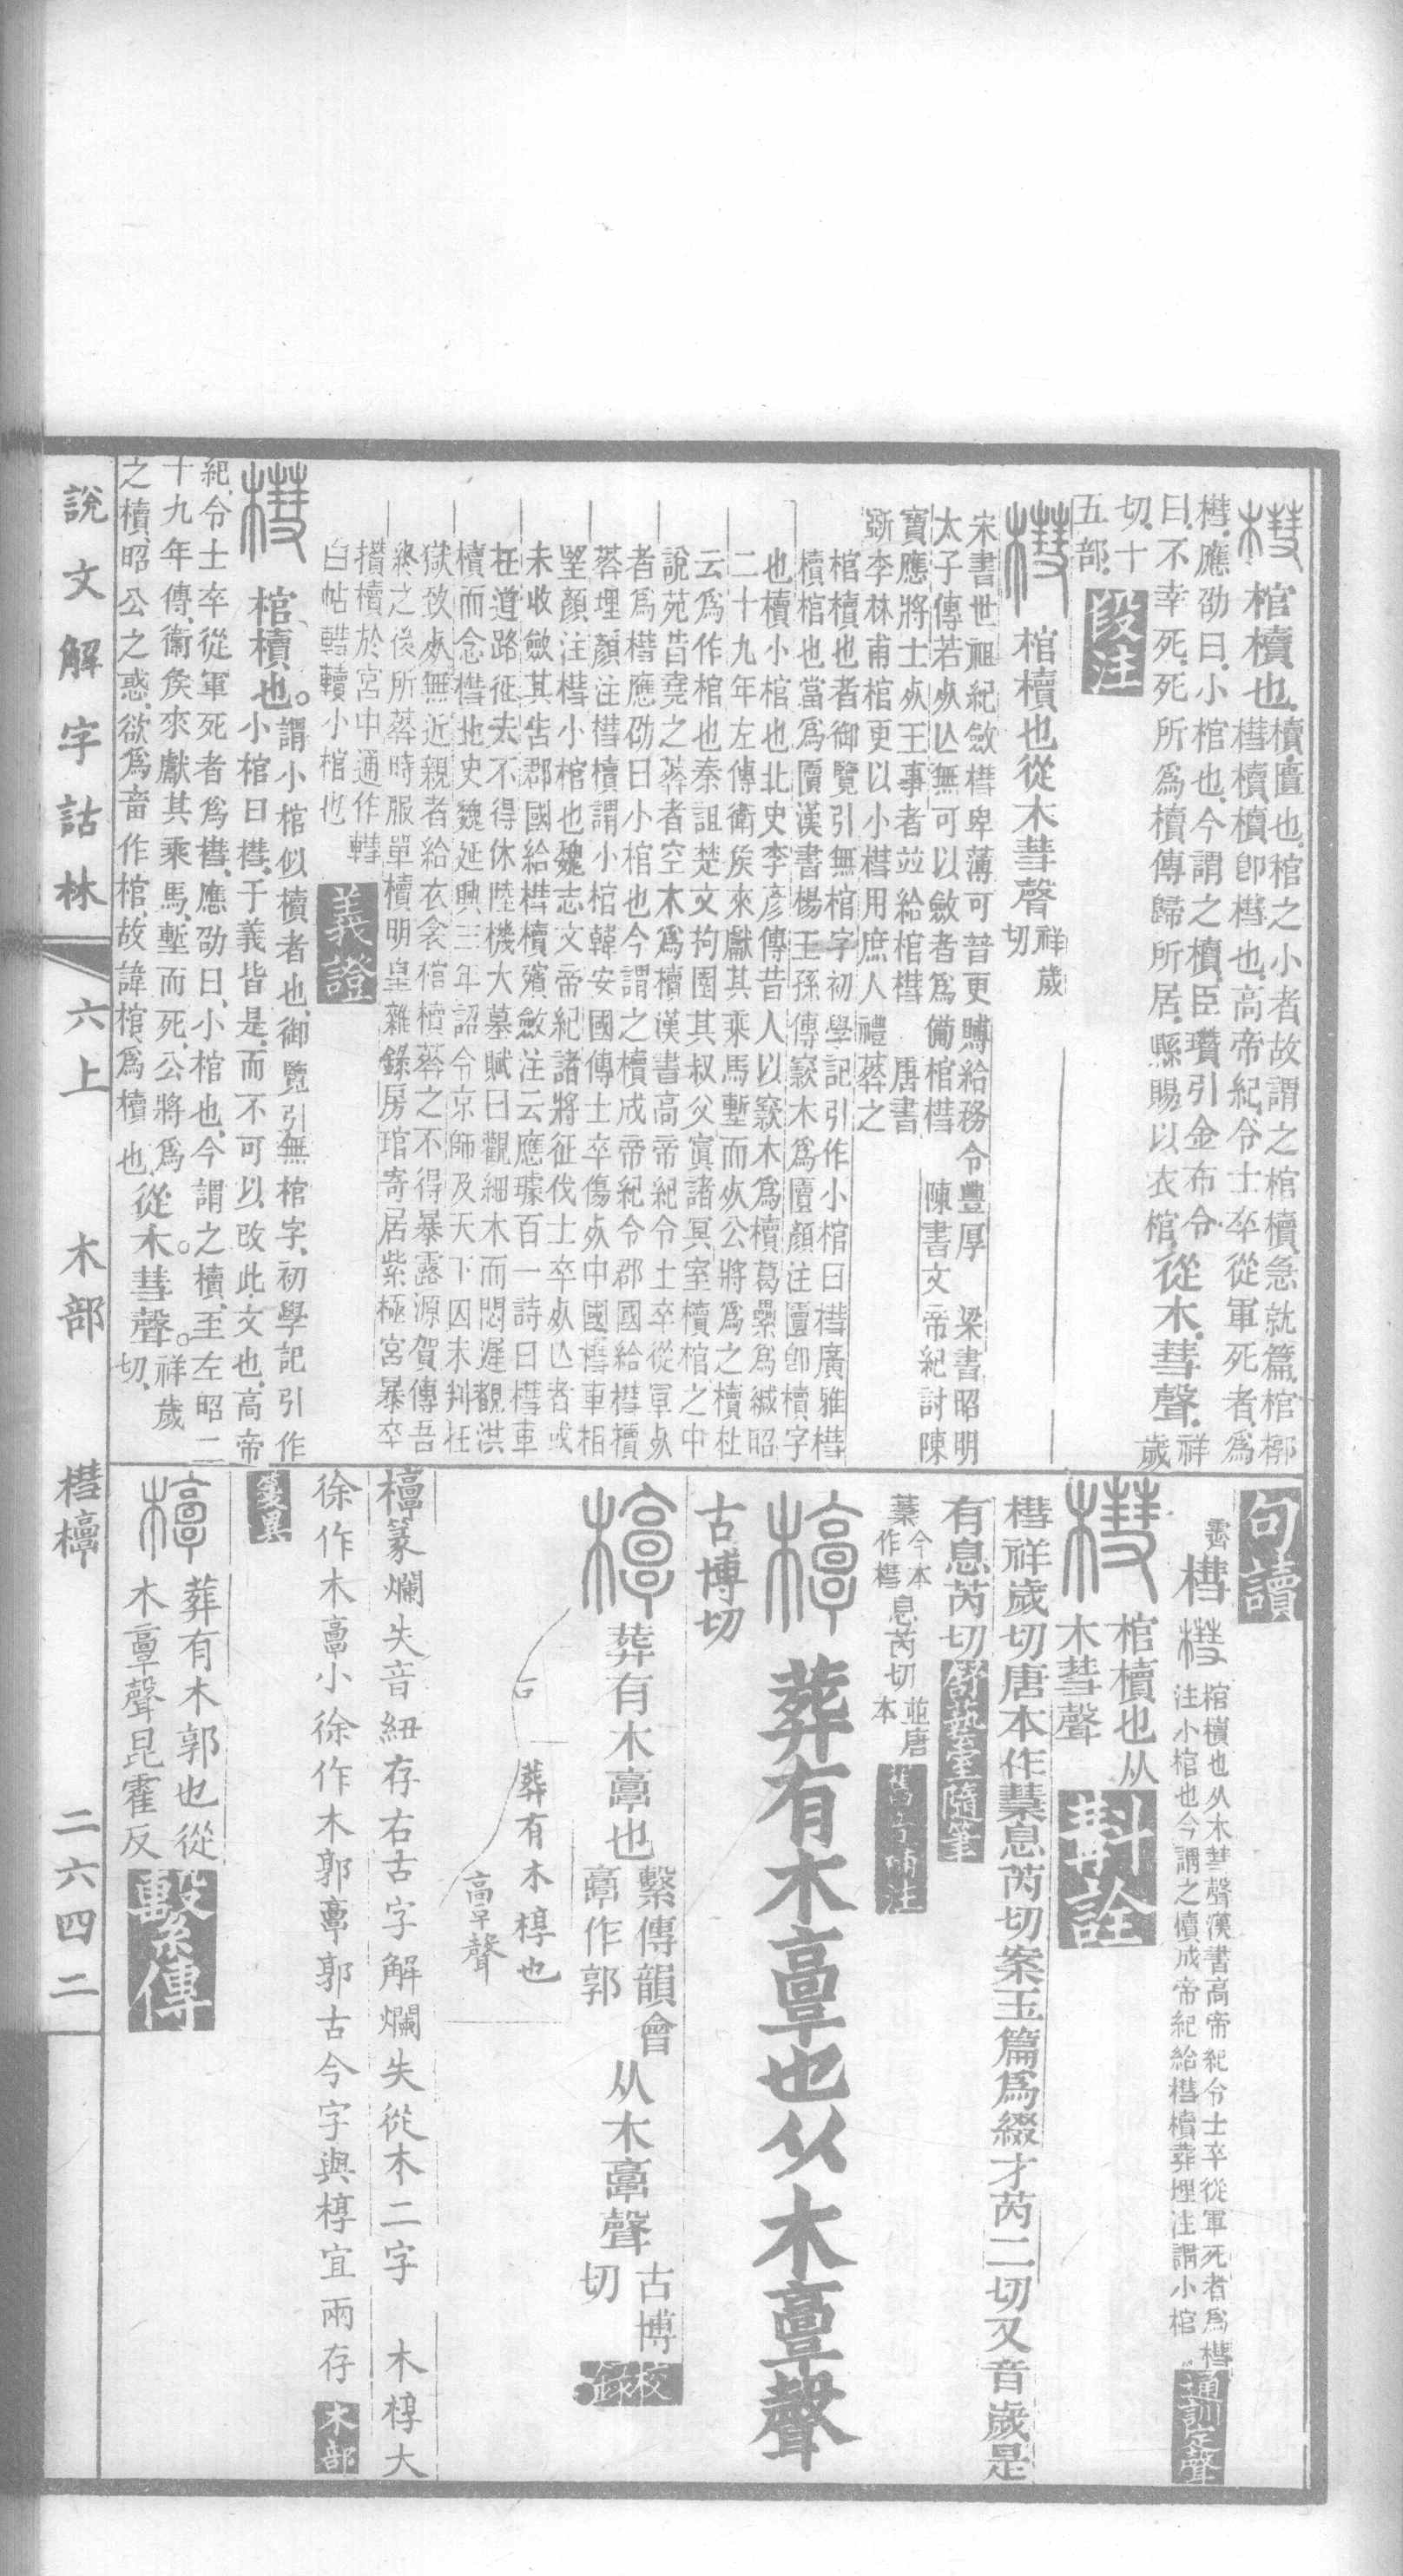 槥棺櫝也櫝匵也棺之小者故謂之棺櫝急就篇棺椁
槥櫝櫝卽槥也高帝紀令士卒從軍死者爲
槥應劭曰小棺也今謂之櫝臣瓚引金布令
曰不幸死死所爲櫝傳歸所居縣賜以衣棺從木彗聲祥歲
切十
五部段注
槥棺櫝也從木彗聲祥歲切
宋書世祖紀斂槥卑薄可普更賻給務令豐厚 梁書昭明
太子傳若𣦸亾無可以斂者爲備棺槥 陳書文帝紀討陳
寶應將士𣦸王事者竝給棺槥 唐書
斵李林甫棺更以小槥用庶人禮葬之
棺櫝也者御覽引無棺字初學記引作小棺曰槥廣雅槥
櫝棺也當爲匵漢書楊王孫傳窾木爲匵顏注匵卽櫝字
也櫝小棺也北史李彥傳昔人以窾木爲櫝葛櫐爲緘昭
二十九年左傳衛矦來獻其乘馬塹而𣦸公將爲之櫝杜
云爲作棺也秦詛楚文拘圉其叔父寘諸冥室櫝棺之中
說苑昔堯之葬者空木爲櫝漢書高帝紀令士卒從軍𣦸
者爲槥應劭曰小棺也今謂之櫝成帝紀令郡國給槥櫝
葬埋顏注槥櫝謂小棺韓安國傳士卒傷𣦸中國槥車相
望顏注槥小棺也魏志文帝紀諸將征伐士卒𣦸亾者或
未收斂其吿郡國給槥櫝殯斂注云應璩百一詩曰槥車
在道路征夫不得休陸機大墓賦曰觀細木而悶遲覩洪
櫝而念槥北史魏延興三年詔令京師及天下囚未判在
獄致𣦸無近親者給衣衾棺櫝葬之不得暴露源賀傳吾
終之後所葬時服單櫝明皇雜錄房琯寄居紫極宮暴卒
攢櫝於宮中通作
白帖轊櫝小棺也義證
槥棺櫝也謂小棺似櫝者也御覽引無棺字初學記引作
小棺曰槥于義皆是而不可以改此文也高帝
紀令士卒從軍死者爲槥應劭曰小棺也今謂之櫝至左昭二
十九年傳衞矦來獻其乘馬塹而死公將爲
之櫝昭公之惑欲爲畜作棺故諱棺爲櫝也從木彗聲祥歲切
句讀
槥棺櫝也从木彗聲漢書高帝紀令士卒從軍死者爲槥
注小棺也今謂之櫝成帝紀給槥櫝葬埋注謂小棺通訓定聲
槥棺櫝也从
木彗聲斠詮
槥祥歲切唐本作㯤息芮切案玉篇爲綴才芮二切又音歲是
有息芮切舒藝室隨筆
㯤今本作槥息芮切並唐本
㯫葬有木𩫏也从木𩫏聲
古博切
㯫葬有木𩫏也繫傳韻會𩫏作郭从木𩫏聲古博切校錄
葬有木椁也
𩫏聲
㯫篆爛失音紐存右古字解爛失從木二字 木椁大
徐作木𩫏小徐作木郭𩫏郭古今字與椁宜兩存木部
箋異
㯫葬有木郭也從
木𩫏聲昆霍反繫傳
說文解字詁林 六上 木部 槥㯫 二六四二